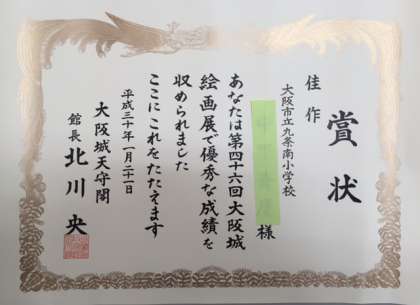 賞状
佳作
大阪市立九条南小学校
様
あなたは第四十六回大阪城
絵画展で優秀な成績を
収められました
ここにこれをたたえます
平成三十年一月二十一日
大阪城天守閣
館長 北川央